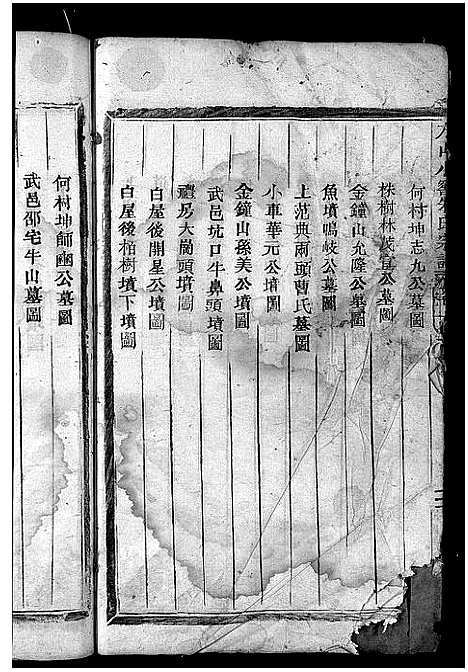 何村坤志九公墓圖
株樹林茂高公墓圖
金鐘山允隆公墓圖
魚墳鳴岐公墓圖
上范典兩頭曹氏墓圖
小車華元公墳圖
金鐘山孫美公墳圖
武邑坑口牛鼻頭墳圖
大崗頭墳圖
白屋後開星公墳圖
白屋後柏樹墳下墳圖
何村坤師幽公墓圖
武邑邵宅牛山墓圖